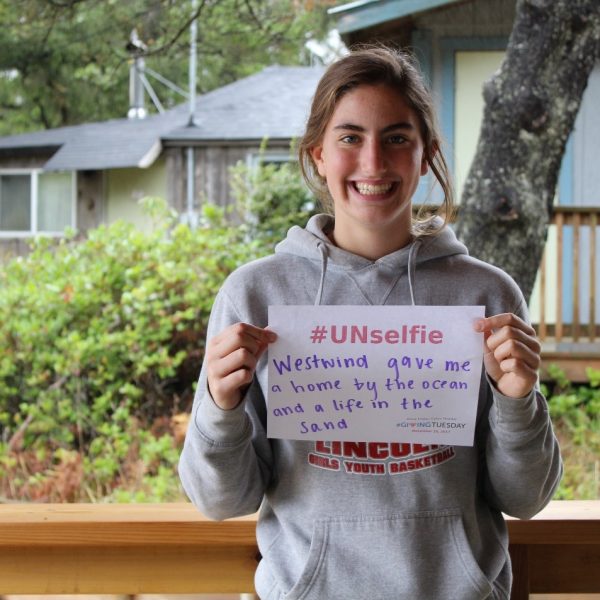 #UNselfie
Westwind gave me
a home by the ocean
and a life in the
Sand
#GIVINGTUESDAY
LINCOLN
GIRLS YOUTH BASKETBALL